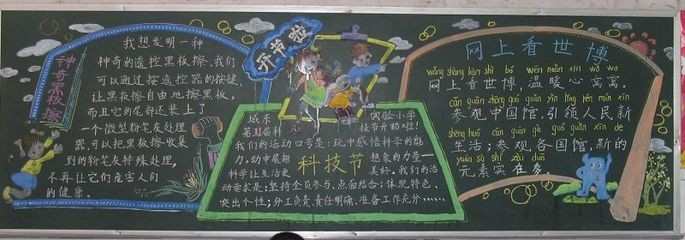 神奇黑板擦
我想发明一种
神奇的遥控黑板擦，我们
可以通过按遥控器的按键，
让黑板擦自由地擦黑板，
而且它的尾部还装上了
一个微型粉笔灰处理
器，可以把黑板擦收集
到的粉笔灰特殊处理，
不再让它们危害人们
的健康。
开节啦
城东 实验小学
第 届科 技节开始啦！
我们的活动口号是：玩中感悟科学的魅
力，动中展翅 想象的力量——
科学让生活更 美好。我们的活
科技节
动要求是：坚持全员参与，点面结合；体现特色，
突出个性；分工负责，责任明确，准备工作充分……
网上看世博
wǎng shàng kàn shì bó wēn nuǎn xīn wō wo
网上看世博，温暖心窝窝。
cān guān zhōng guó guǎn yǐn lǐng rén mín xīn
参观中国馆，引领人民新
shēng huó cān guān gè guó guǎn xīn de
生活；参观各国馆，新的
yuán sù shí zài duō
元素实在多。